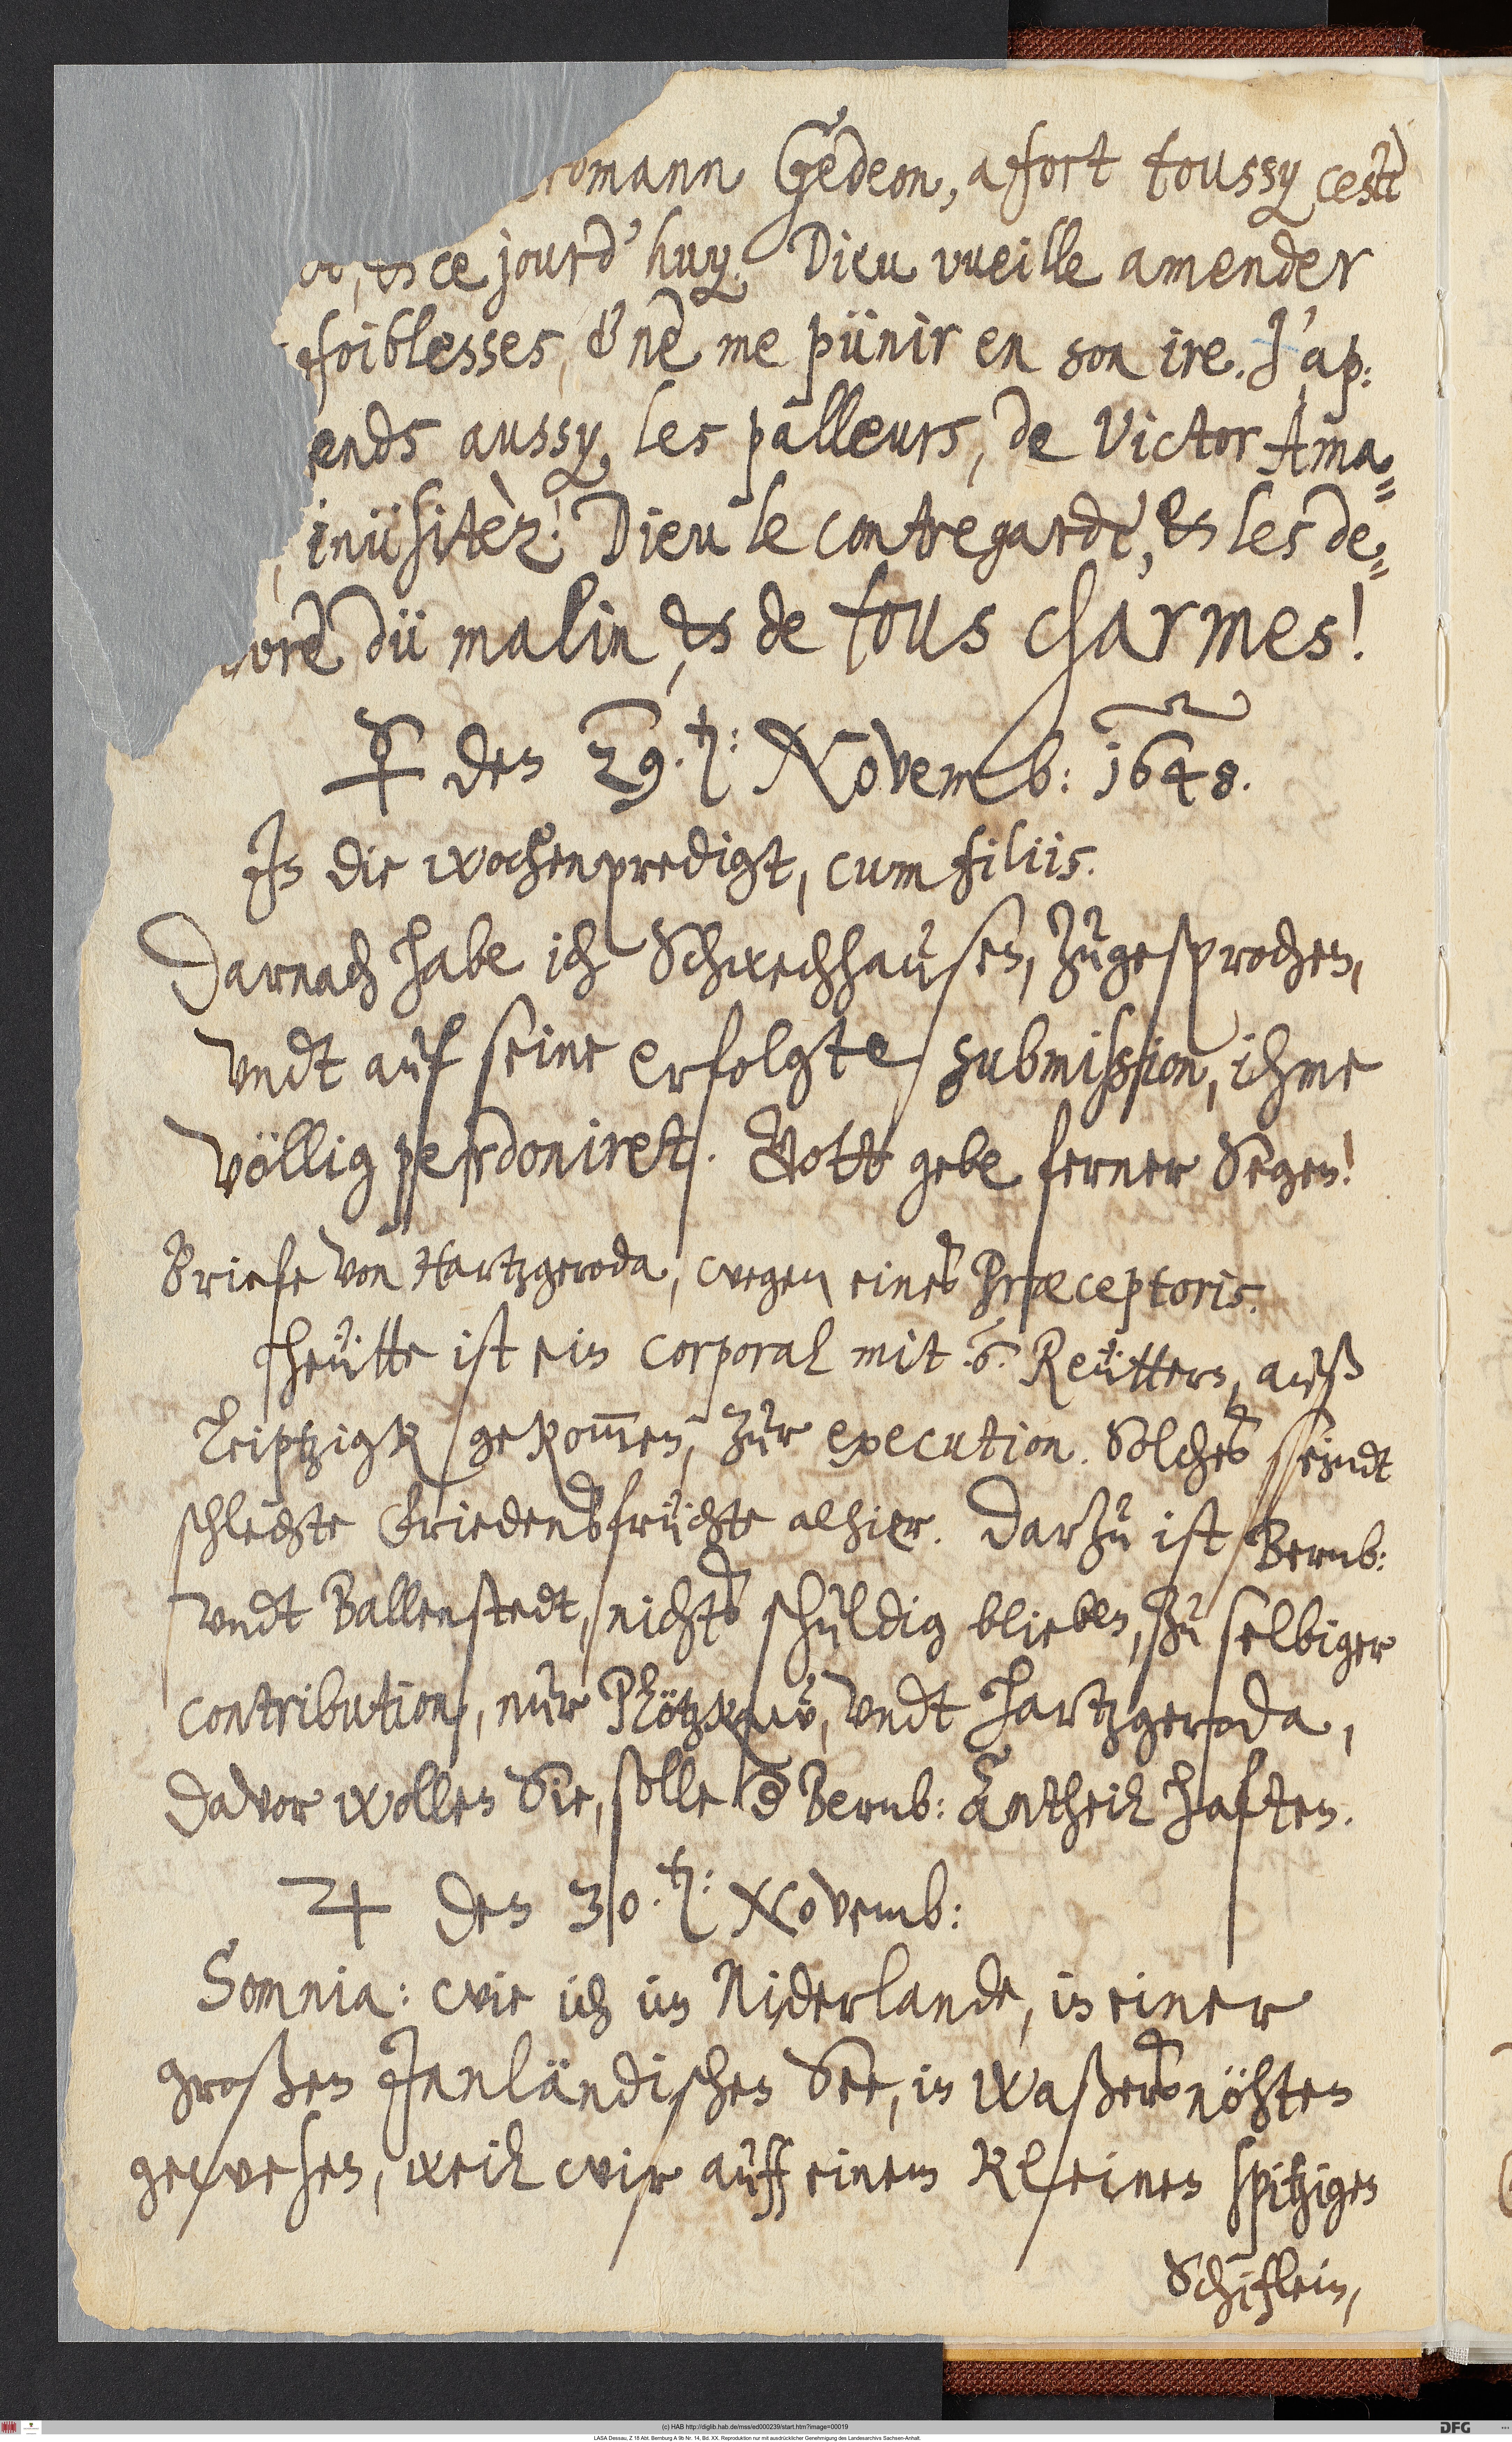 omann Gedeon, a fort toussy cest
, & ce jourd'huy. Dieu vueille amender
foiblesses, & ne me pünir en son ire. J'ap:
ends aussy, les pâlleurs, de Victor Ama⸗
, inüsitèz! Dieu le contregarde, & les de⸗
vre dü malin, & de tous charmes!
☿ den 29. ten: Novemb: 1648.
Jn die wochenpredigt, cum filiis.
Darnach habe ich Schwechhausen, zugesprochen,
vndt auf seine erfolgte submission, ihme
völlig perdoniret. Gott gebe ferner Segen!
Briefe von Hartzgeroda, wegen eines Præceptoris.
Heütte ist ein corporal mit .6. Reüttern, auß
Leiptzigk gekom̄en, zur execution. Solches seindt
schlechte Friedensfrüchte alhier. Darzu ist Bernb:
vndt Ballenstedt, nichts schuldig blieben, zu selbiger
contribution, nur Plötzkaw, vndt Hartzgeroda,
davor wollen Sie, solle d Bernb: Antheil haften.
♃ den 30. ten: Novemb:
Somnia: wie ich in Niderlande, in einer
großen Jnnländischen See, in Waßersnöhten
gewesen, weil wir auff einem kleinen spitzigen
Schiflein,
(c) HAB http://diglib.hab.de/mss/ed000239/start.htm?image=00019
DFG
LASA Dessau, Z 18 Abt. Bernburg A 9b Nr. 14, Bd. XX. Reproduktion nur mit ausdrücklicher Genehmigung des Landesarchivs Sachsen-Anhalt.